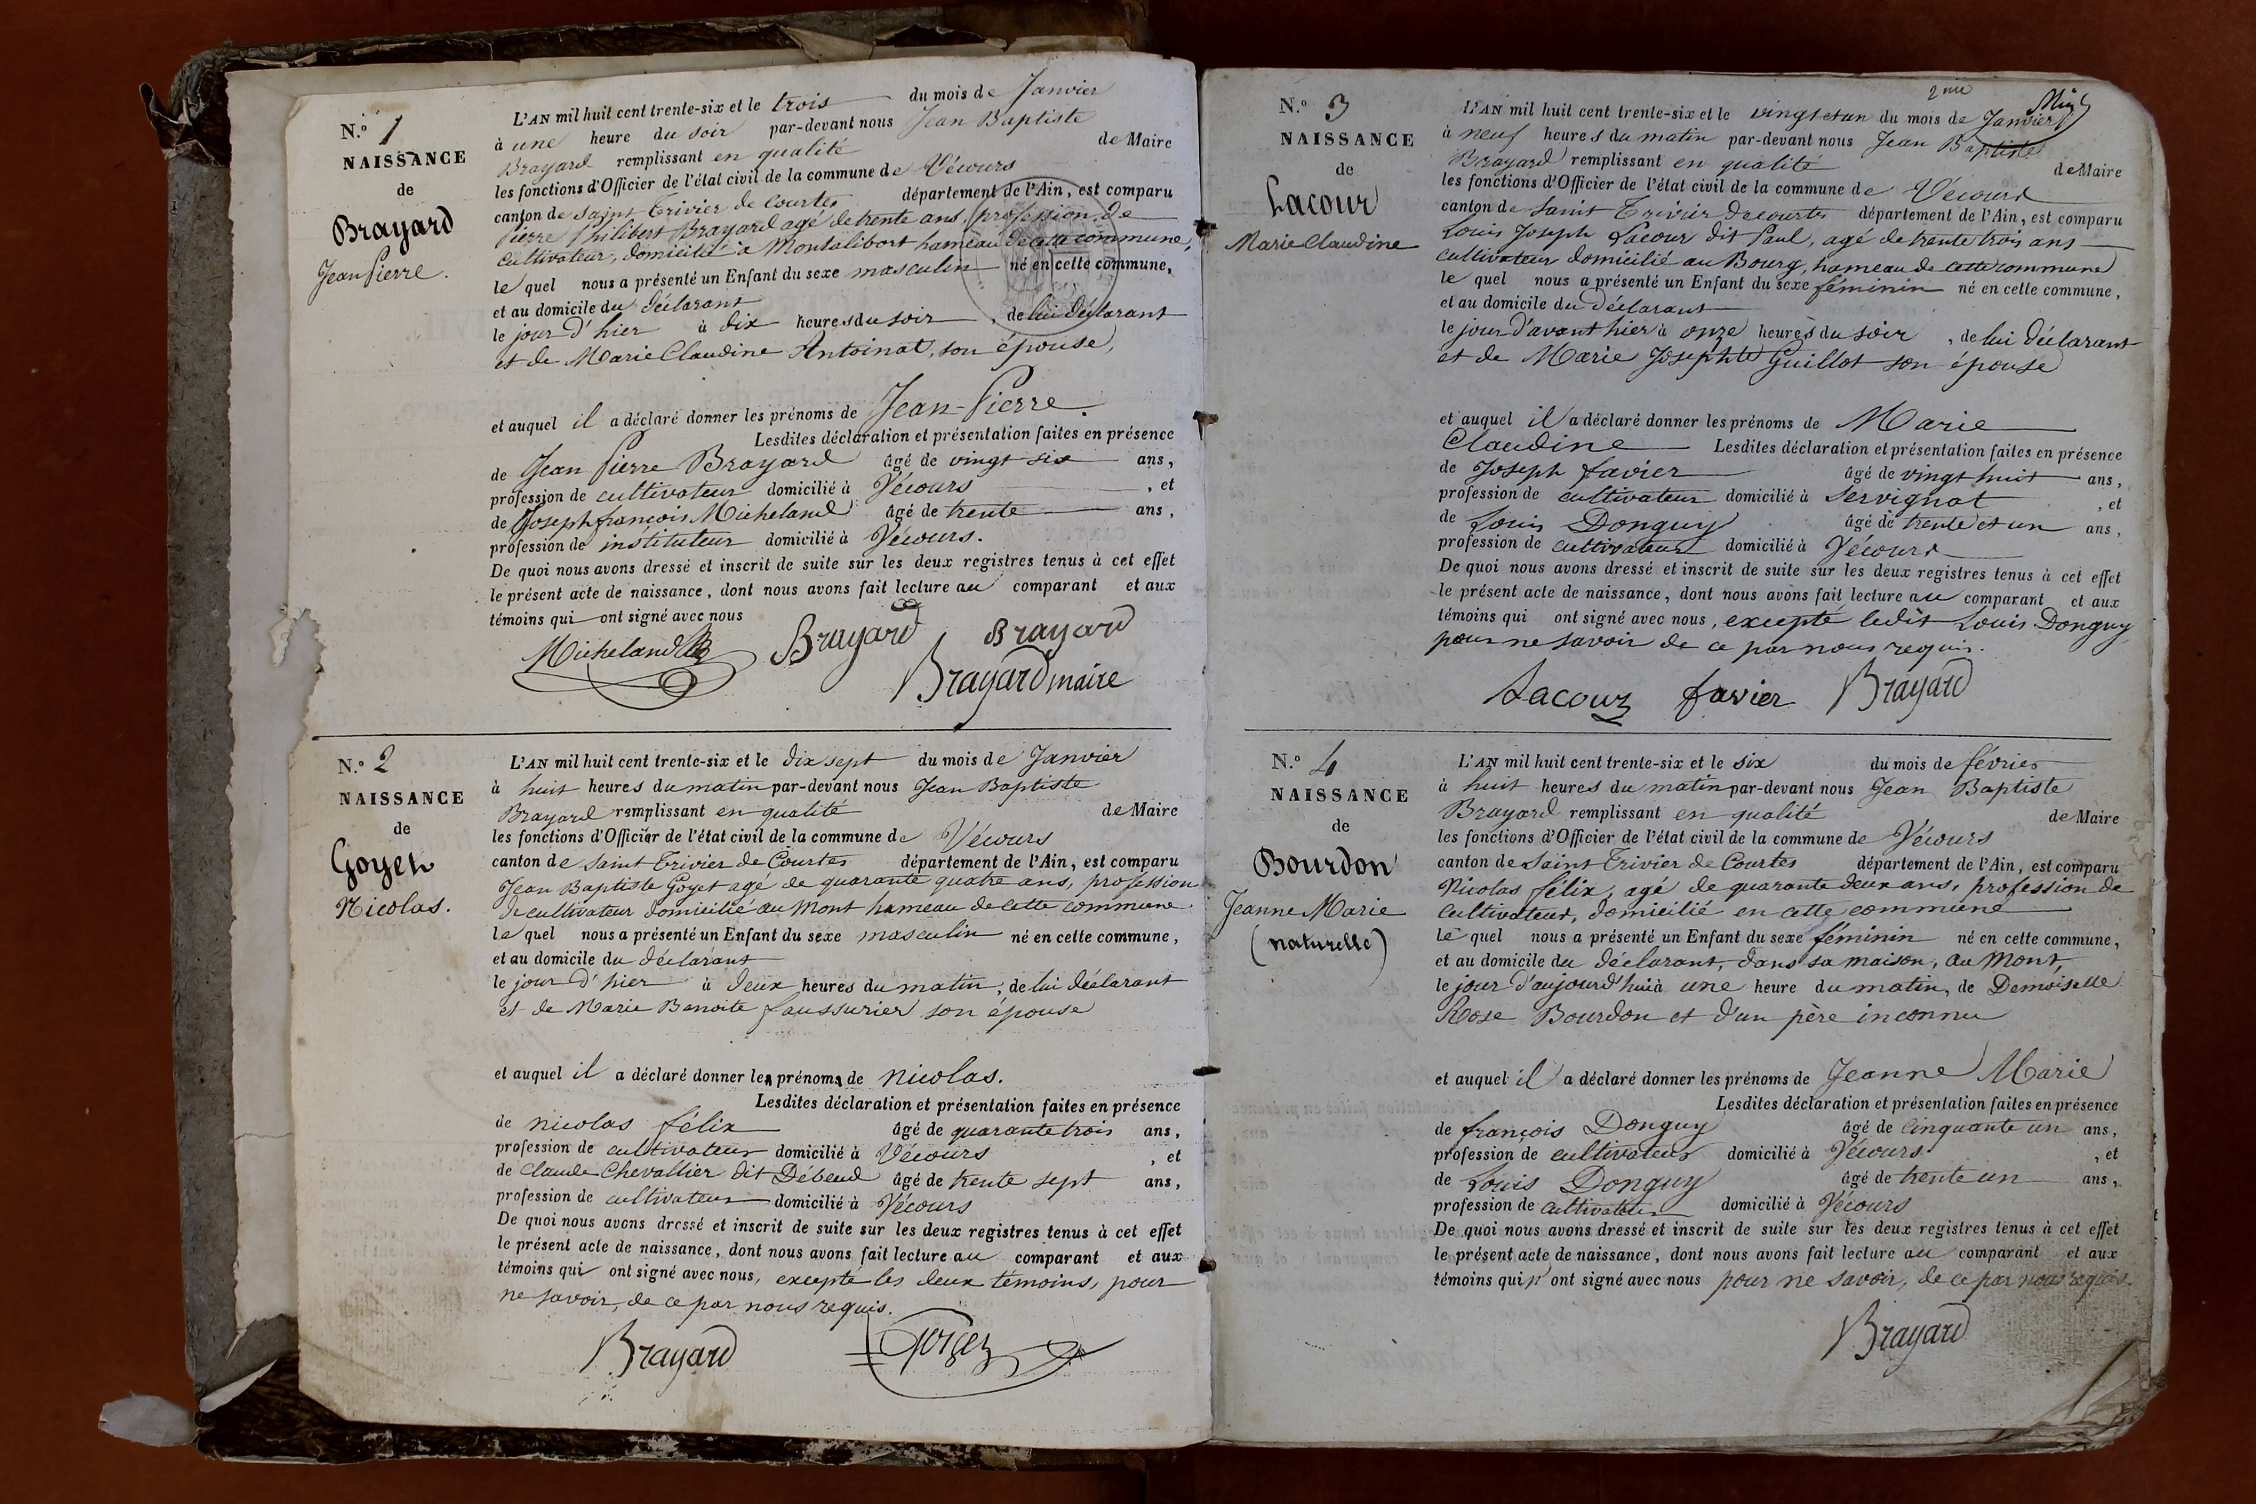 N.º 1
NAISSANCE
de
Brayard
Jean Pierre.
L'AN mil huit cent trente-six et le trois du mois de Janvier
à une heure du soir par-devant nous Jean Baptiste
Brayard remplissant en qualité de Maire
les fonctions d'Officier de l'état civil de la commune de Vécours
canton de saint Trivier de Courtes département de l'Ain, est comparu
Pierre Philibert Brayard agé de trente ans, profession de
cultivateur, domicilié à Montalibort hameau de cette commune,
le quel nous a présenté un Enfant du sexe masculin né en cette commune,
et au domicile du déclarant
le jour d'hier à dix heures du soir, de lui déclarant
et de Marie Claudine Antoinat, son épouse,
et auquel il a déclaré donner les prénoms de Jean-Pierre.
Lesdites déclaration et présentation faites en présence
de Jean Pierre Brayard âgé de vingt six ans,
profession de cultivateur domicilié à Vécours, et
de Joseph françois Micheland âgé de trente ans,
profession de instituteur domicilié à Vécours.
De quoi nous avons dressé et inscrit de suite sur les deux registres tenus à cet effet
le présent acte de naissance, dont nous avons fait lecture au comparant et aux
témoins qui ont signé avec nous
Micheland Brayard Brayard
Brayard maire
N.º 2
NAISSANCE
de
Goyet
Nicolas.
L'AN mil huit cent trente-six et le dix sept du mois de Janvier
à huit heures du matin par-devant nous Jean Baptiste
Brayard remplissant en qualité de Maire
les fonctions d'Officier de l'état civil de la commune de Vécours
canton de saint Trivier de Courtes département de l'Ain, est comparu
Jean Baptiste Goyet agé de quarante quatre ans, profession
de cultivateur domicilié au Mont hameau de cette commune
le quel nous a présenté un Enfant du sexe masculin né en cette commune,
et au domicile du déclarant
le jour d'hier à deux heures du matin, de lui déclarant
et de Marie Benoite faussurier son épouse
et auquel il a déclaré donner les prénoms de Nicolas.
Lesdites déclaration et présentation faites en présence
de Nicolas félix âgé de quarante trois ans,
profession de cultivateur domicilié à Vécours, et
de Claude Chevallier dit Débeud âgé de trente sept ans,
profession de cultivateur domicilié à Vécours
De quoi nous avons dressé et inscrit de suite sur les deux registres tenus à cet effet
le présent acte de naissance, dont nous avons fait lecture au comparant et aux
témoins qui ont signé avec nous, excepté les deux témoins, pour
ne savoir, de ce par nous requis.
Brayard Goyet
2me
N.º 3
NAISSANCE
de
Lacour
Marie Claudine
L'AN mil huit cent trente-six et le vingt et un du mois de Janvier
à neuf heures du matin par-devant nous Jean Baptiste
Brayard remplissant en qualité de Maire
les fonctions d'Officier de l'état civil de la commune de Vécours
canton de Saint Trivier de courtes département de l'Ain, est comparu
Louis Joseph Lacour dit Paul, agé de trente trois ans
cultivateur domicilié au Bourg, hameau de cette commune
le quel nous a présenté un Enfant du sexe féminin né en cette commune,
et au domicile du Déclarant
le jour d'avant hier à onze heures du soir, de lui déclarant
et de Marie Josephte Guillot son épouse
et auquel il a déclaré donner les prénoms de Marie
Claudine Lesdites déclaration et présentation faites en présence
de Joseph favier âgé de vingt huit ans,
profession de cultivateur domicilié à Servignat, et
de Louis Donguy âgé de trente et un ans,
profession de cultivateur domicilié à Vécours
De quoi nous avons dressé et inscrit de suite sur les deux registres tenus à cet effet
le présent acte de naissance, dont nous avons fait lecture au comparant et aux
témoins qui ont signé avec nous, excepté ledit Louis Donguy
pour ne savoir de ce par nous requis.
Lacour favier Brayard
N.º 4
NAISSANCE
de
Bourdon
Jeanne Marie
(naturelle)
L'AN mil huit cent trente-six et le six du mois de février
à huit heures du matin par-devant nous Jean Baptiste
Brayard remplissant en qualité de Maire
les fonctions d'Officier de l'état civil de la commune de Vécours
canton de Saint Trivier de Courtes département de l'Ain, est comparu
Nicolas félix, agé de quarante deux ans, profession de
cultivateur, domicilié en cette commune
le quel nous a présenté un Enfant du sexe féminin né en cette commune,
et au domicile du déclarant, dans sa maison, au Mont,
le jour d'aujourd'hui à une heure du matin, de Demoiselle
Rose Bourdon et d'un père inconnu
et auquel il a déclaré donner les prénoms de Jeanne Marie
Lesdites déclaration et présentation faites en présence
de françois Donguy âgé de cinquante un ans,
profession de cultivateur domicilié à Vécours, et
de Louis Donguy âgé de trente un ans,
profession de cultivateur domicilié à Vécours
De quoi nous avons dressé et inscrit de suite sur les deux registres tenus à cet effet
le présent acte de naissance, dont nous avons fait lecture au comparant et aux
témoins qui n'ont signé avec nous pour ne savoir, de ce par nous requis.
Brayard